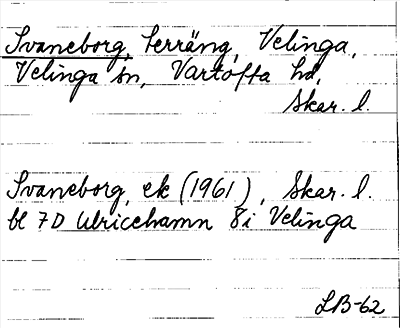 Svaneborg, terräng, Velinga,
Velinga sn, Vartofta hd,
Skar. l.
Svaneborg, ek (1961), Skar. l.
bl 7D Ulricehamn 8i Velinga
LB-62